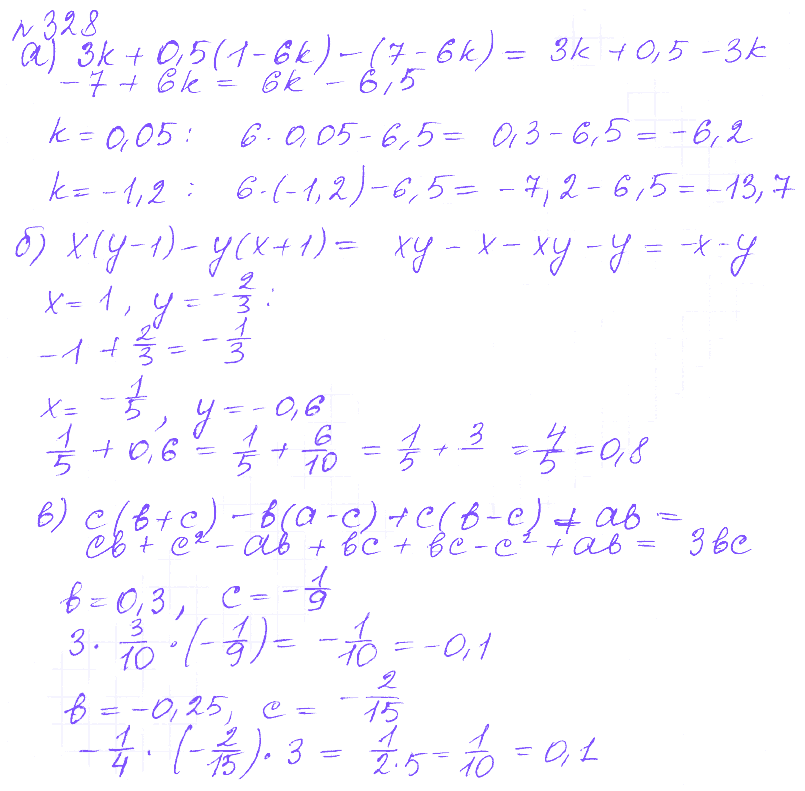 №328
а) 3k + 0,5(1-6k) - (7-6k) = 3k + 0,5 - 3k
-7 + 6k = 6k - 6,5
k = 0,05 : 6 · 0,05 - 6,5 = 0,3 - 6,5 = -6,2
k = -1,2 : 6·(-1,2) - 6,5 = -7,2 - 6,5 = -13,7
б) x(y-1) - y(x+1) = xy - x - xy - y = -x - y
x = 1, y = -2/3 :
-1 + 2/3 = -1/3
x = -1/5, y = -0,6
1/5 + 0,6 = 1/5 + 6/10 = 1/5 + 3/ = 4/5 = 0,8
в) c(b+c) - b(a-c) + c(b-c) + ab =
cb + c² - ab + bc + bc - c² + ab = 3bc
b = 0,3, c = -1/9
3 · 3/10 · (-1/9) = -1/10 = -0,1
b = -0,25, c = -2/15
-1/4 · (-2/15) · 3 = 1/2·5 = 1/10 = 0,1